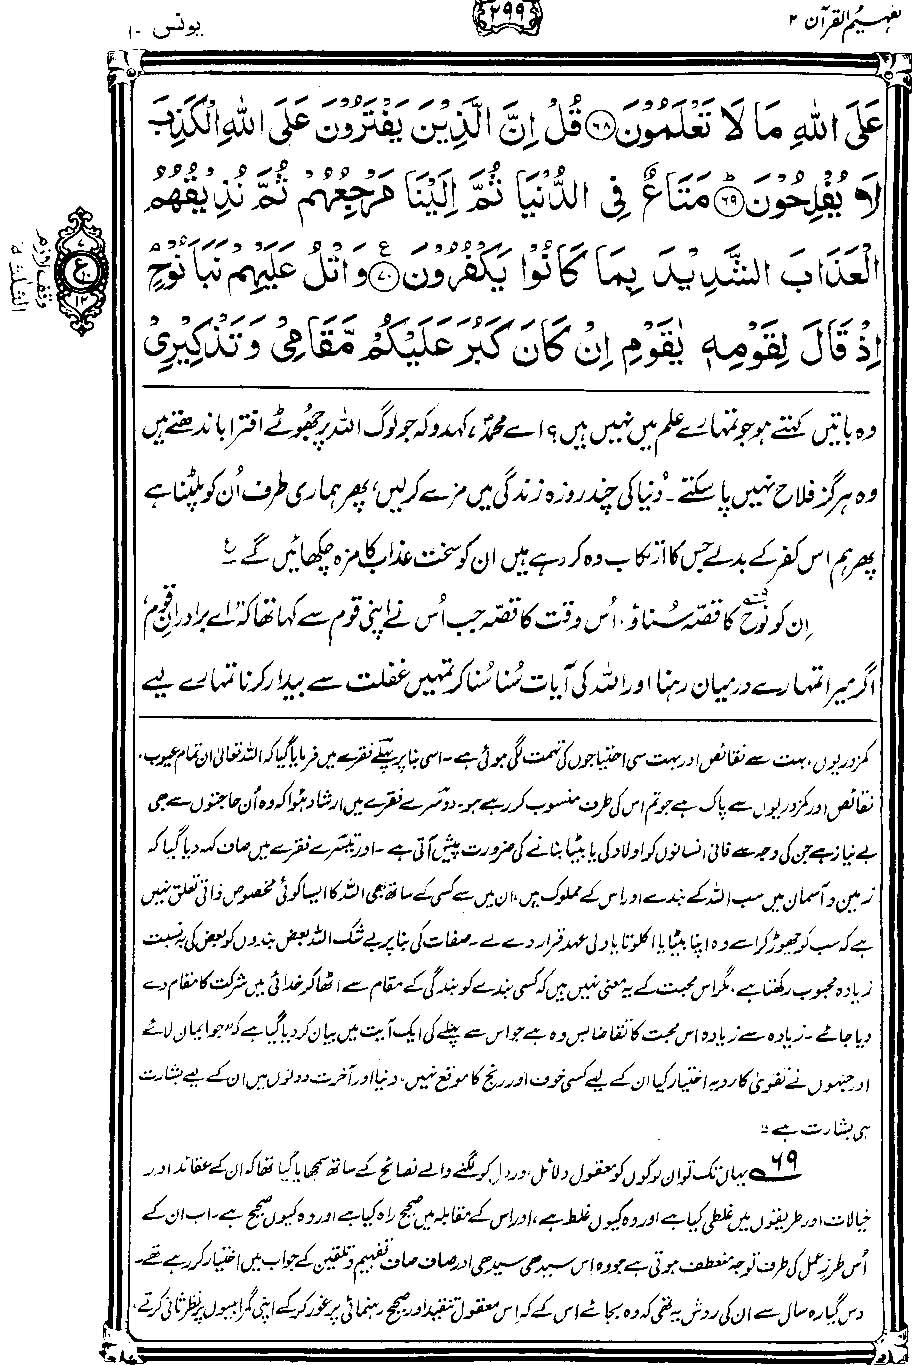 تفہیم القرآن ۲
۲۹۹
یونس ۱۰
عَلَی اللّٰهِ مَا لَا تَعْلَمُوْنَ ﴿۶۸﴾ قُلْ اِنَّ الَّذِیْنَ یَفْتَرُوْنَ عَلَی اللّٰهِ الْکَذِبَ
لَا یُفْلِحُوْنَ ؕ﴿۶۹﴾ مَتَاعٌ فِی الدُّنْیَا ثُمَّ اِلَیْنَا مَرْجِعُهُمْ ثُمَّ نُذِیْقُهُمُ
الْعَذَابَ الشَّدِیْدَ بِمَا کَانُوْا یَکْفُرُوْنَ ﴿۷۰﴾ع وَ اتْلُ عَلَیْهِمْ نَبَاَ نُوْحٍ
اِذْ قَالَ لِقَوْمِهٖ یٰقَوْمِ اِنْ کَانَ کَبُرَ عَلَیْکُمْ مَّقَامِیْ وَ تَذْکِیْرِیْ
ع
وقف لازم
وہ باتیں کہتے ہو جو تمہارے علم میں نہیں ہیں؟ اے محمدؐ، کہہ دو کہ جو لوگ اللہ پر جھوٹے افترا باندھتے ہیں
وہ ہرگز فلاح نہیں پا سکتے۔ دُنیا کی چند روزہ زندگی میں مزے کر لیں، پھر ہماری طرف اُن کو پلٹنا ہے
پھر ہم اس کفر کے بدلے جس کا ارتکاب وہ کر رہے ہیں ان کو سخت عذاب کا مزہ چکھائیں گے۔ ع
اِن کو نوحؑ کا قصّہ سُناؤ، اُس وقت کا قصّہ جب اُس نے اپنی قوم سے کہا تھا کہ ”اے برادرانِ قوم،
اگر میرا تمہارے درمیان رہنا اور اللہ کی آیات سُنا سُنا کر تمہیں غفلت سے بیدار کرنا تمہارے لیے
کمزوریوں، بہت سے نقائص اور بہت سی احتیاجوں کی تہمت لگی ہوئی ہے۔ اسی بنا پر پہلے فقرے میں فرمایا گیا کہ اللہ تعالیٰ ان تمام عیوب،
نقائص اور کمزوریوں سے پاک ہے جو تم اس کی طرف منسوب کر رہے ہو۔ دوسرے فقرے میں ارشاد ہوا کہ وہ اُن حاجتوں سے بھی
بے نیاز ہے جن کی وجہ سے فانی انسانوں کو اولاد کی یا بیٹا بنانے کی ضرورت پیش آتی ہے۔ اور تیسرے فقرے میں صاف کہہ دیا گیا کہ
زمین و آسمان میں سب اللہ کے بندے اور اس کے مملوک ہیں، ان میں سے کسی کے ساتھ بھی اللہ کا ایسا کوئی مخصوص ذاتی تعلق نہیں
ہے کہ سب کو چھوڑ کر اسے وہ اپنا بیٹا یا اکلوتا یا ولی عہد قرار دے لے۔ صفات کی بنا پر بے شک اللہ بعض بندوں کو بعض کی بہ نسبت
زیادہ محبوب رکھتا ہے، مگر اس محبت کے یہ معنی نہیں ہیں کہ کسی بندے کو بندگی کے مقام سے اٹھا کر خدائی میں شرکت کا مقام دے
دیا جائے۔ زیادہ سے زیادہ اس محبت کا تقاضا بس وہ ہے جو اس سے پہلے کی ایک آیت میں بیان کر دیا گیا ہے کہ ”جو ایمان لائے
اور جنہوں نے تقویٰ کا رویہ اختیار کیا ان کے لیے کسی خوف اور رنج کا موقع نہیں، دنیا اور آخرت دونوں میں ان کے لیے بشارت
ہی بشارت ہے“
۶۹ یہاں تک تو ان لوگوں کو معقول دلائل، اور دل کو لگنے والے نصائح کے ساتھ سمجھایا گیا تھا کہ ان کے عقائد اور
خیالات اور طریقوں میں غلطی کیا ہے اور وہ کیوں غلط ہے، اور اس کے مقابلہ میں صحیح راہ کیا ہے اور وہ کیوں صحیح ہے۔ اب ان کے
اُس طرزِ عمل کی طرف توجہ منعطف ہوتی ہے جو وہ اس سیدھی سیدھی اور صاف صاف تفہیم و تلقین کے جواب میں اختیار کر رہے تھے۔
دس گیارہ سال سے ان کی روش یہ تھی کہ وہ بجائے اس کے کہ اس معقول تنقید اور صحیح رہنمائی پر غور کر کے اپنی گمراہیوں پر نظر ثانی کرتے،